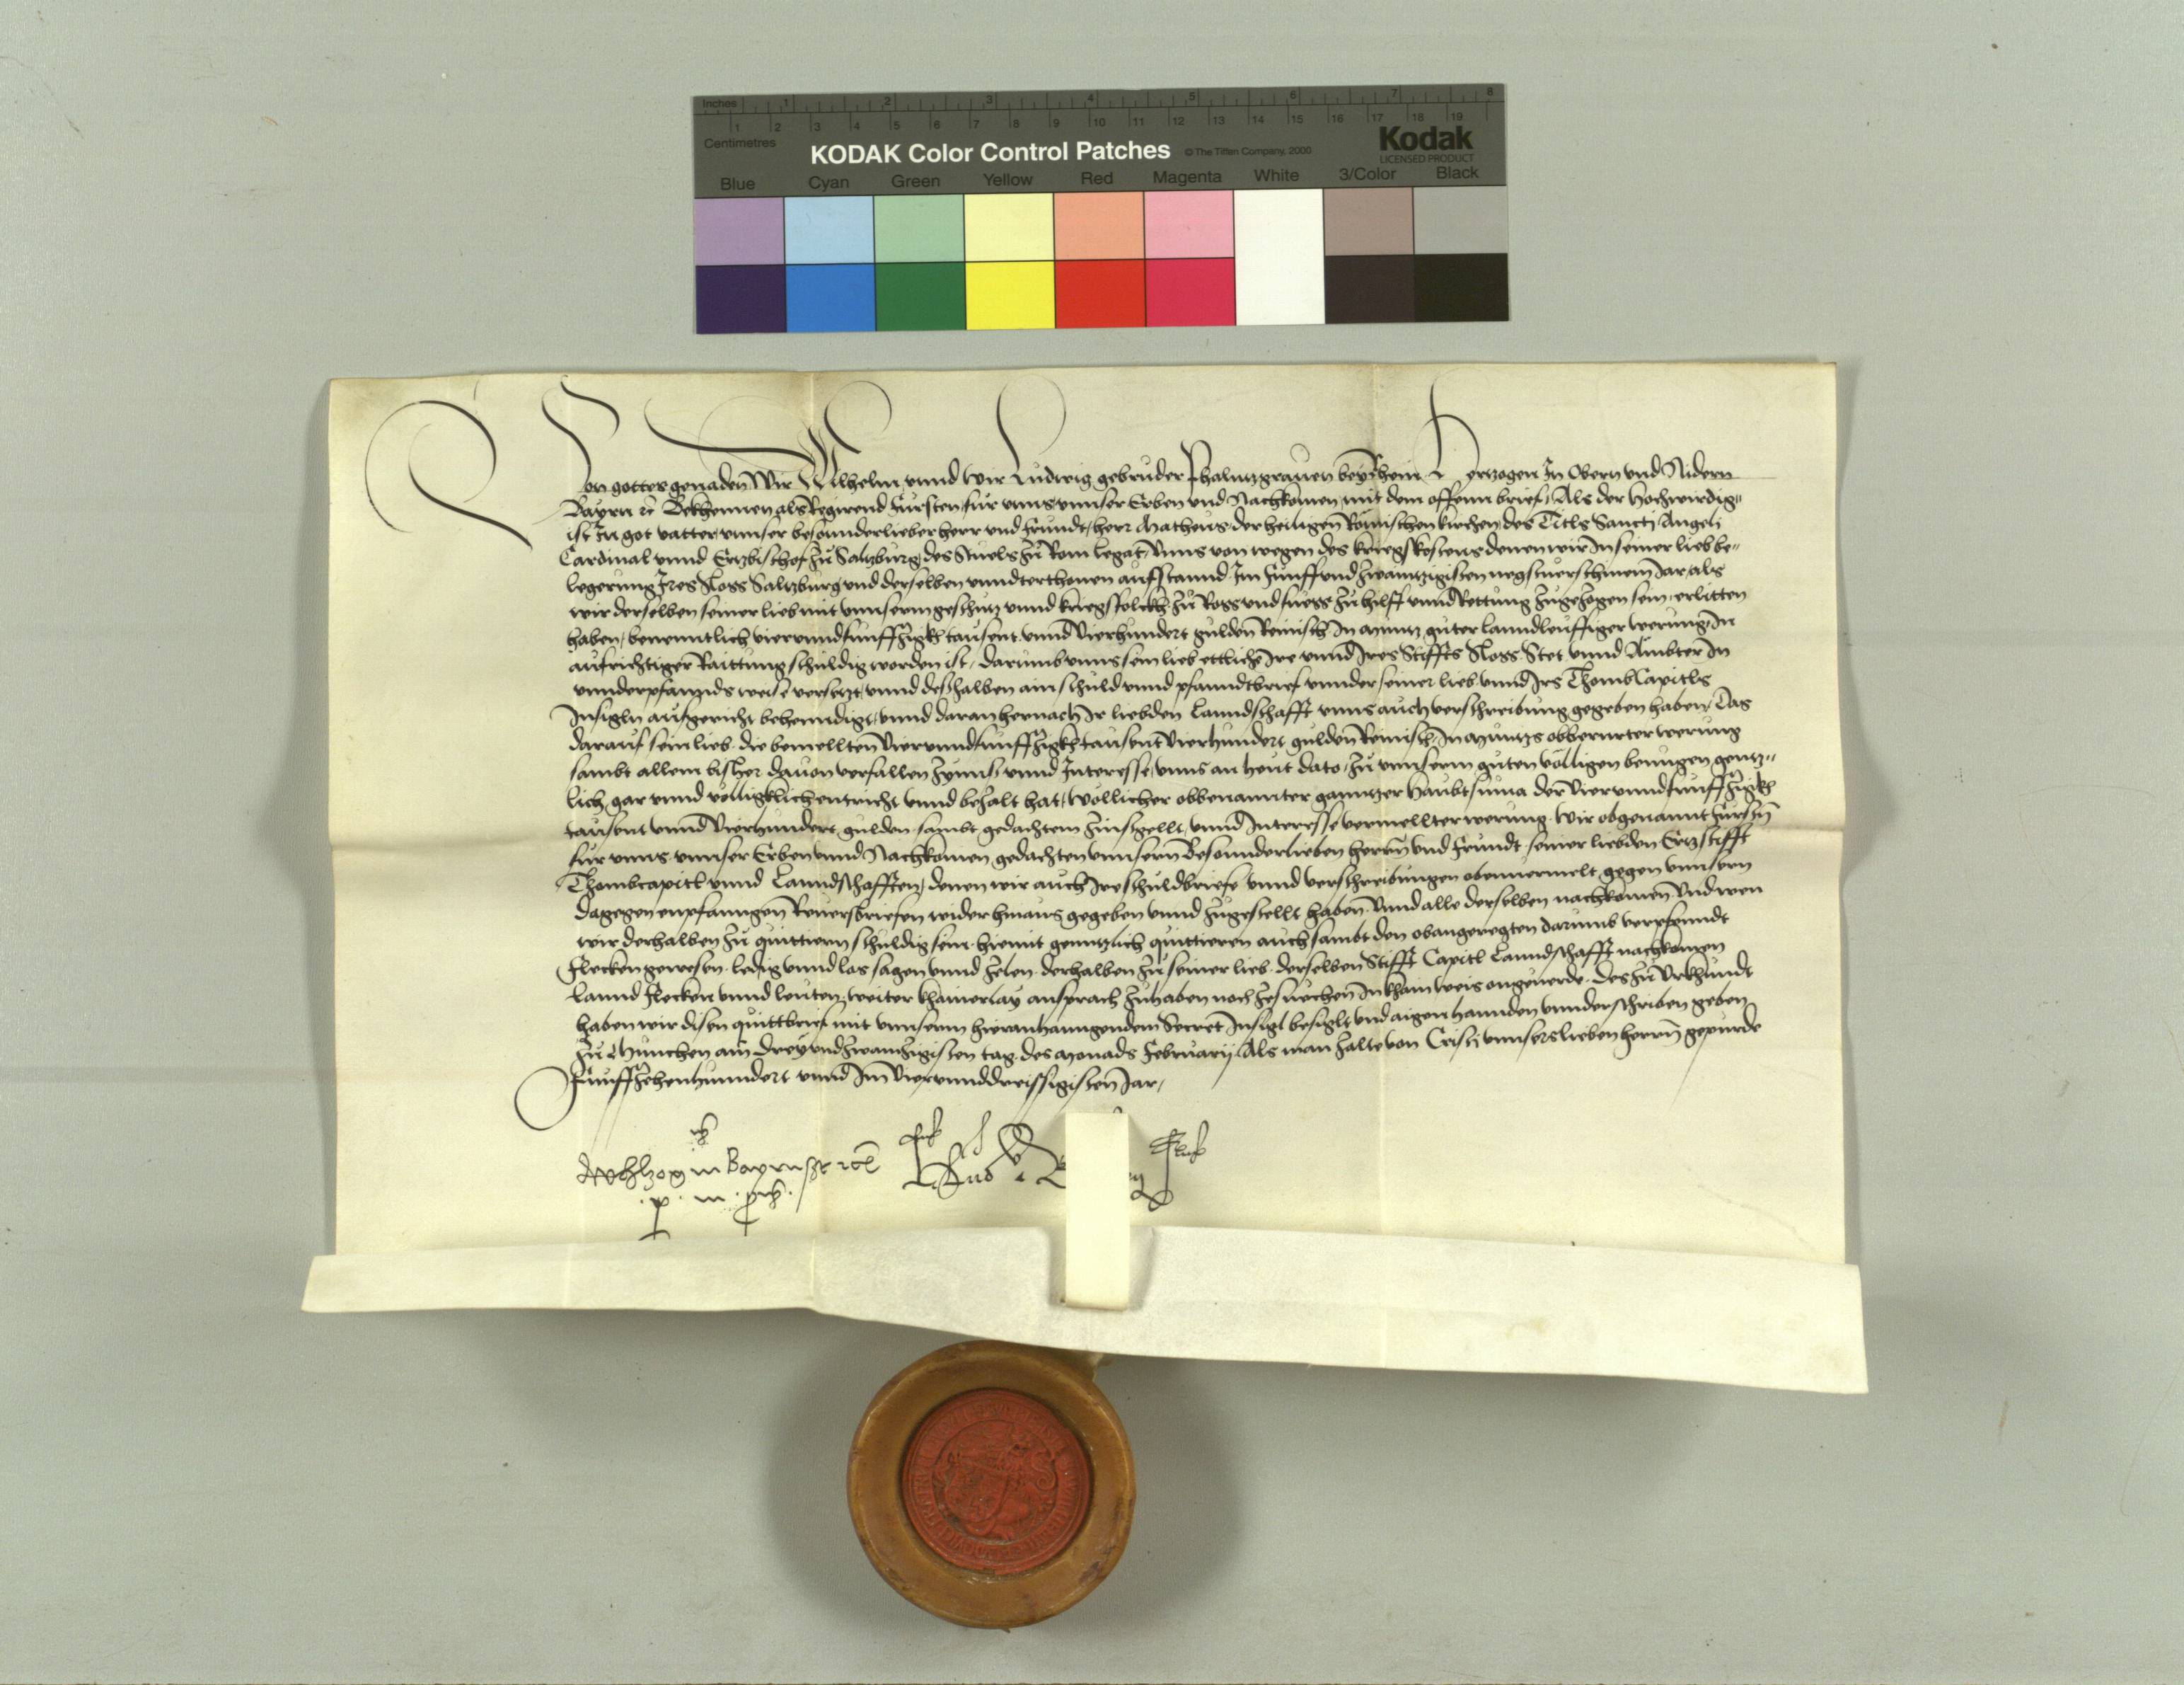 Inches 1 2 3 4 5 6 7 8
Centimetres 1 2 3 4 5 6 7 8 9 10 11 12 13 14 15 16 17 18 19
KODAK Color Control Patches © The Tiffen Company, 2000 Kodak
LICENSED PRODUCT
Blue Cyan Green Yellow Red Magenta White 3/Color Black
Von gottes genaden Wir Wilhelm vnnd Wir Ludwig gebruder Phalnntzgrauen bey Rhein Hertzogen In Obern vnd Nidern
Bayrn rc Bekhennen als Regirend Fürsten, für vnns vnnser Erben vnd Nachkomen, mit dem offenn brief, Als der Hochwirdig-
ist In got vatter, vnnser besounderlieber herr vnd frundt, herr Matheus, der heiligen Römischen kirchen, des Titls Sancti Angeli
Cardinal vnnd Ertzbischof zu Saltzburg, des Stuels zu Rom Legat, Vnns von wegen des kriegs kostens denen wir In seiner lieb be-
legerung Ires Sloss Saltzburg vnd derselben vnndterthonen aufstannd Im Funffvndzwaintzigisten negstuerschinem Jar, als
wir derselben seiner lieb mit vnnserm geschutz vnnd kriegsfolckh zu Ross vnd fuess zu hilff vnnd Rettung zugezogen sein, erlitten
haben, benenntlich viervnndfunffzigkh tausent vnnd Vierhundert gulden Reinisch In muntz guter lanndleuffiger werung, In
aufrichtiger Raittung schuldig worden ist, darumb vnns sein lieb ettliche Ire vnnd Ires Stiffts Sloss Stet vnnd Ämbter In
vnnderpfannds weise versetzt, vnnd deshalben ain schuld vnnd pfanndtbrief vnnder seiner lieb vnnd Irs ThombCapitls
Insigln aufgericht behenndigt, vnnd daran hernach Ir liebden Lanndschafft vnns auch verschreibung gegeben haben, Das
darauf sein lieb die bemellten Viervnndfunffzigkh tausent Vierhundert gulden Reinisch, In muntzs obberurter werung
sambt allem bisher dauon verfallen Zynns vnnd Interesse, vnns an heut dato, zu vnnserm guten völligen benugen genntz-
lich, gar vnnd völligklich entricht vnnd bezalt hat, Wöllicher obbenannter ganntzer Haubtsuma der Viervnndfunffzigkh
tausent vnnd Vierhundert gulden sambt gedachtem Zinsgellt, vnnd Interesse vermellter werung. Wir obgenannt Fürstn
für vnns vnnser Erben vnnd Nachkomen gedachten vnnsern Besounderlieben herrn vnd frundt seiner liebden Ertzstifft
Thombcapitl vnnd Lanndschafften, denen wir auch Ire schuldbriefe vnnd verschreibungen obenvermelt gegen vnnsern
dagegen enpfanngen Reuersbriefen wider hinaus gegeben vnnd zugestellt haben. Vnnd alle derselben nachkomen Vnd wen
wir derhalben zu quittiern schuldig sein, hiemit genntzlich quittieren auch sambt den obangeregten darumb verpfenndt
Flecken gewesen, ledig vnnd los sagen vnnd zelen. derhalben zu seiner lieb, derselben Stifft Capitl Lanndschafft nachkomen
Lannd flecken vnnd leuten, weiter khainerlay ansprach zuhaben noch zesuechen In kham weis ongeuerde. Des zu Vrkhundt
haben wir disen quittbrief mit vnnserm hieranhanngendem Secret Insigl besiglt vnd aigen hannden vnnderschriben geben
zu München am dreyvndzwaintzigisten tag des monads Februarii Als man zalte von Cristi vnnsers lieben herrn gepurde
Funffzehenhundert vnnd Im Viervnnddreissigisten Jar,